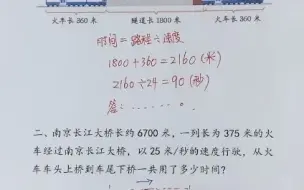 火车长 360 米 隧道长 1800 米 火车长 360 米
时间=路程÷速度
1800+360=2160(米)
2160÷24=90(秒)
答:........
二、南京长江大桥长约 6700 米,一列长为 375 米的火
车经过南京长江大桥,以 25 米/秒的速度行驶,从火
车车头上桥到车尾下桥一共用了多少时间?